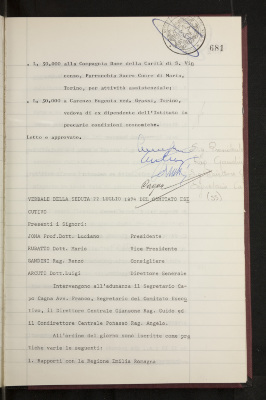 681
. L. 50.000 alla Compagnia Suor della Carità di S. Vin
cenzo, Parrocchia Sacro Cuore di Maria,
Torino, per attività assistenziale;
. L. 50.000 a Carozzo Eugenia ved. Grasso, Torino,
vedova di ex dipendente dell'Istituto in
precarie condizioni economiche.
Letto e approvato.
VERBALE DELLA SEDUTA 22 LUGLIO 1974 DEL COMITATO ESE
CUTIVO
Presenti i Signori:
JONA Prof.Dott. Luciano Presidente
Dott. Mario Vice Presidente
Rag. Renzo Consigliere
ARCUTI Dott.Luigi Direttore Generale
Intervengono all'adunanza il Segretario Ca-
po Cagna Avv. Franco, Segretario del Comitato Esecu-
tivo, il Direttore Centrale Giansone Rag. Guido ed
il Condirettore Centrale Rag. Angelo.
All'ordine del giorno sono iscritte come pra
tiche varie le seguenti:
1. Rapporti con la Regione Emilia Romagna